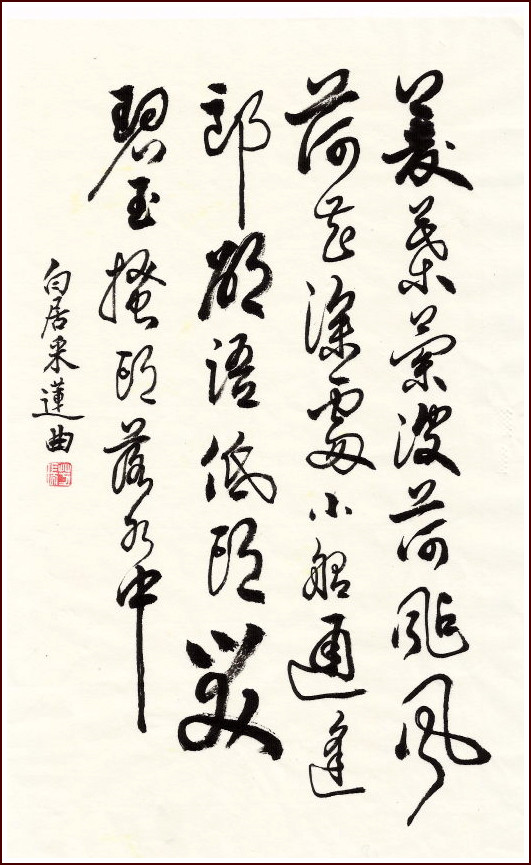 菱葉縈波荷颭風
荷花深處小船通逢
郎欲語低頭笑
碧玉搔頭落水中
白居采蓮曲